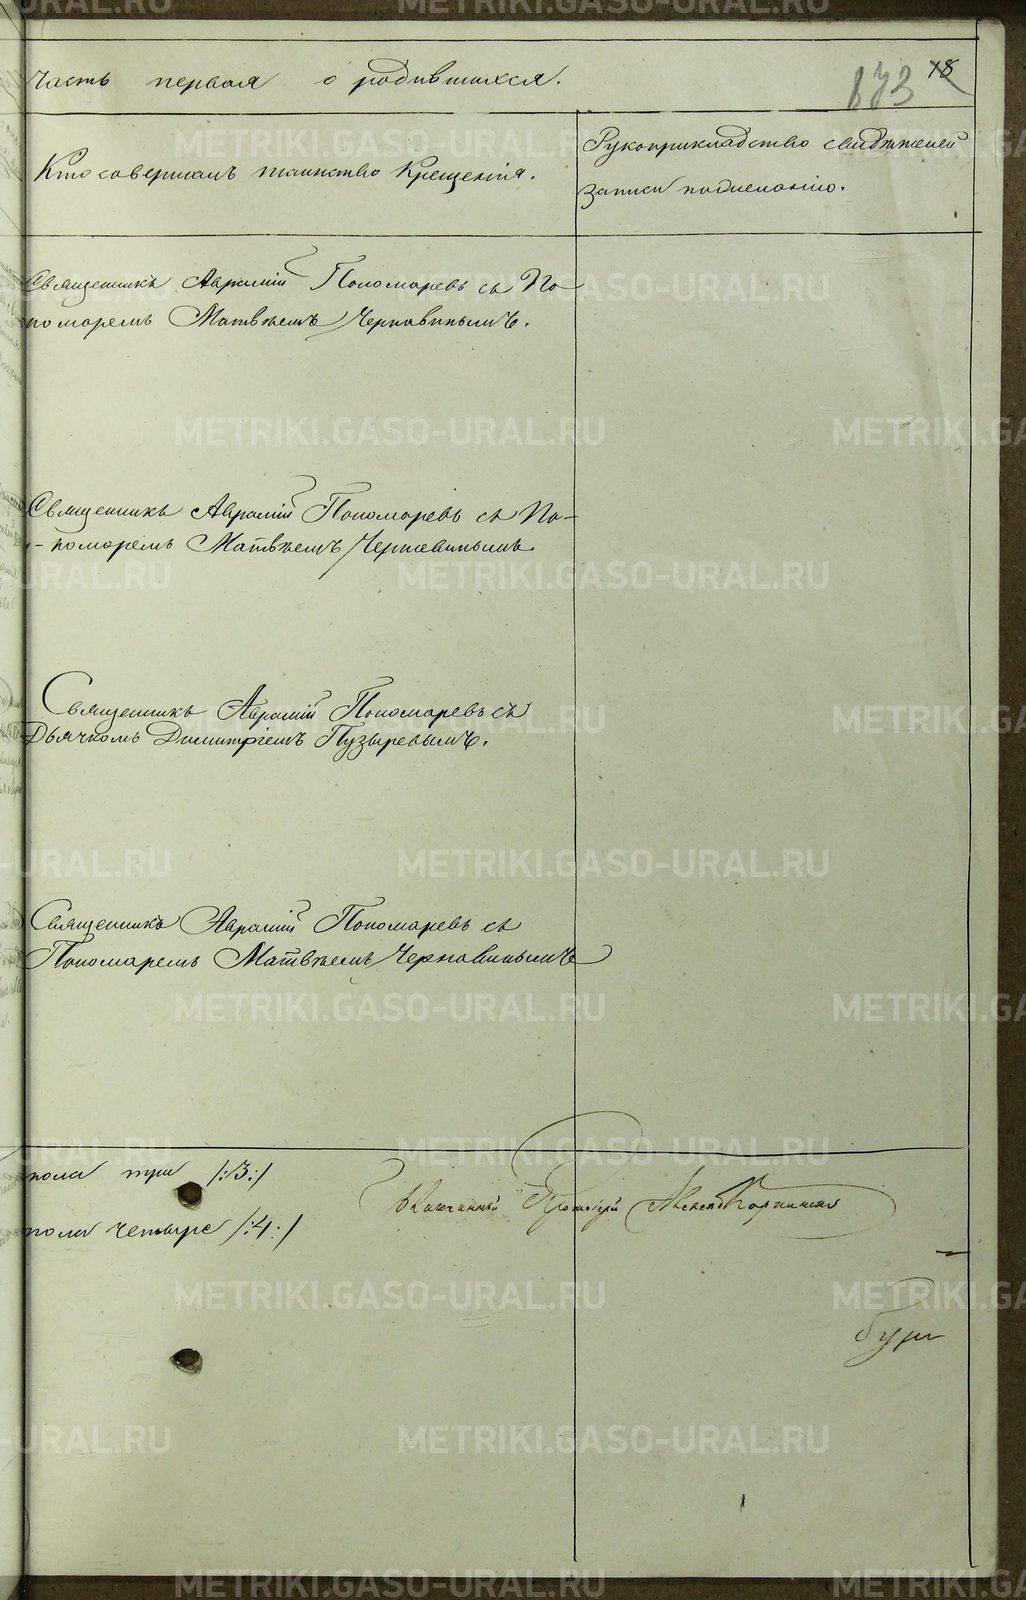 Часть первая о родившихся.
873 18
Кто совершалъ таинство Крещенія.
Рукоприкладство свидѣтелей
записи по желанію.
Священникъ Аврамій Пономаревъ съ По-
номаремъ Матвѣемъ Чернавинымъ.
Священникъ Аврамій Пономаревъ съ По-
-номаремъ Матвѣемъ Чернавинымъ
Священникъ Аврамій Пономаревъ съ
Дьячкомъ Димитріемъ Пузыревымъ.
Священникъ Аврамій Пономаревъ съ
Пономаремъ Матвѣемъ Чернавинымъ
пола три /:3:/
пола четыре /:4:/
Протоіерей
METRIKI.GASO-URAL.RU